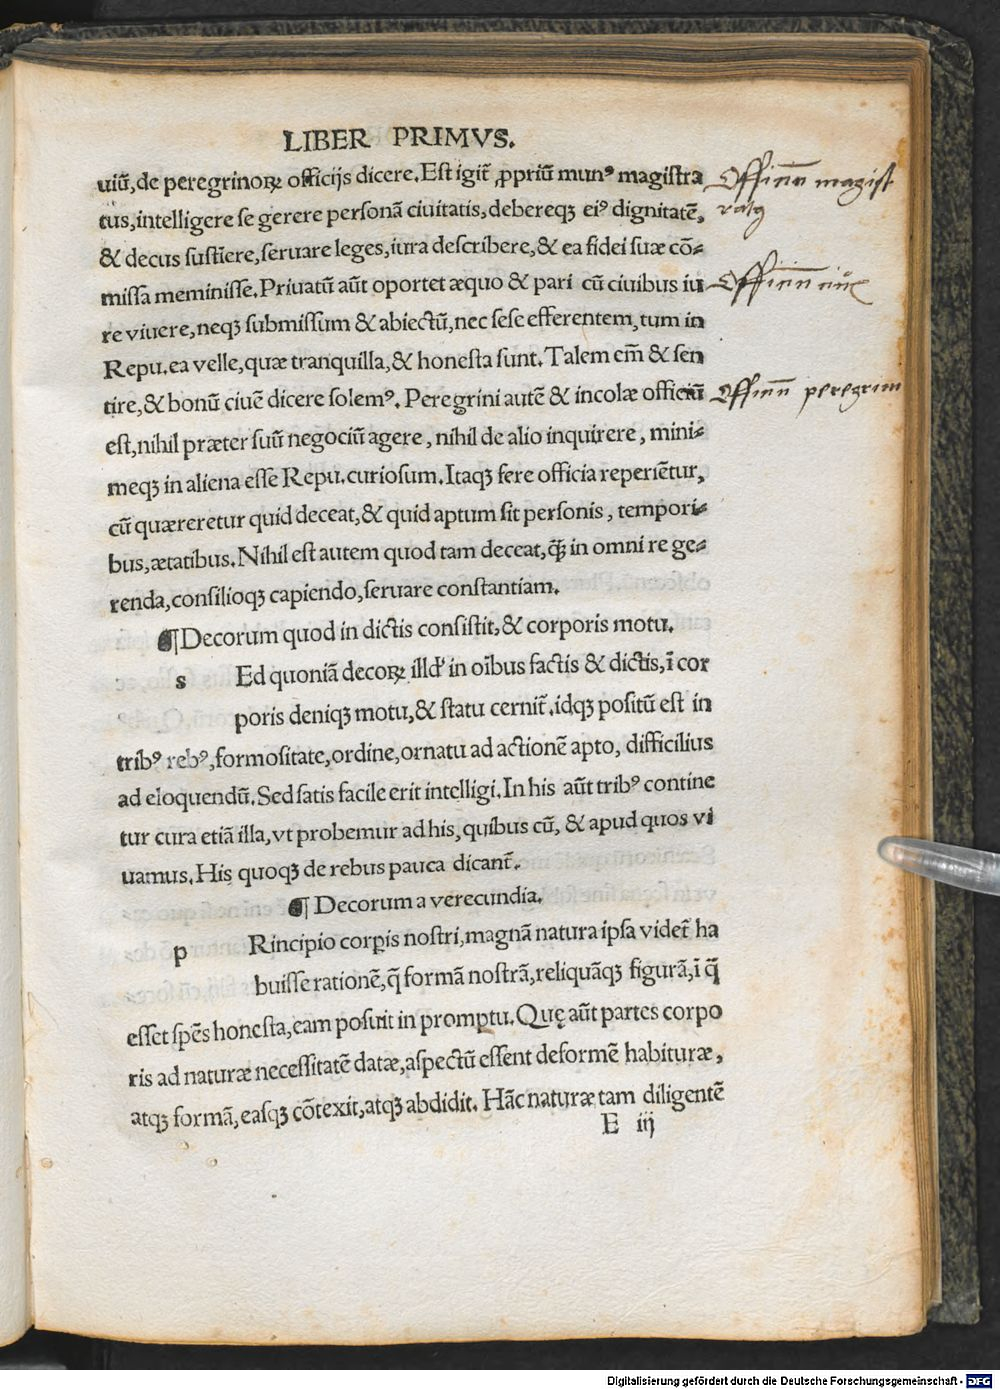 LIBER PRIMVS.
uiũ, de peregrinoꝝ officijs dicere. Est igit̃ ꝓpriũ munꝰ magistra
tus, intelligere se gerere personã ciuitatis, debereqꝫ eiꝰ dignitatẽ,
& decus sustĩere, seruare leges, iura describere, & ea fidei suæ cõ⸗
missa meminisse. Priuatũ aũt oportet æquo & pari cũ ciuibus iu
re viuere, neqꝫ submissum & abiectũ, nec sese efferentem, tum in
Repu. ea velle, quæ tranquilla, & honesta sunt. Talem em̃ & sen
tire, & bonũ ciuẽ dicere solemꝰ. Peregrini autẽ & incolæ officiũ
est, nihil præter suũ negociũ agere, nihil de alio inquirere, mini⸗
meqꝫ in aliena esse Repu. curiosum. Itaqꝫ fere officia reperiẽtur,
cũ quæreretur quid deceat, & quid aptum sit personis, tempori⸗
bus, ætatibus. Nihil est autem quod tam deceat, q̃ꝫ in omni re ge⸗
renda, consilioqꝫ capiendo, seruare constantiam.
¶ Decorum quod in dictis consistit, & corporis motu.
s Ed quoniã decoꝝ illd' in oĩbus factis & dictis, ĩ cor
poris deniqꝫ motu, & statu cernit̃. idqꝫ positũ est in
tribꝰ rebꝰ, formositate, ordine, ornatu ad actionẽ apto, difficilius
ad eloquendũ. Sed satis facile erit intelligi. In his aũt tribꝰ contine
tur cura etiã illa, vt probemur ad his, quibus cũ, & apud quos vi
uamus. His quoqꝫ de rebus pauca dicant̃.
¶ Decorum a verecundia.
p Rincipio corꝑis nostri, magnã natura ipsa videt̃ ha
buisse rationẽ, q̃ formã nostrã, reliquãqꝫ figurã, ĩ q̃
esset spẽs honesta, eam posuit in promptu. Quę aũt partes corpo
ris ad naturæ necessitatẽ datæ, aspectũ essent deformẽ habituræ,
atqꝫ formã, easqꝫ cõtexit, atqꝫ abdidit. Hãc naturæ tam diligentẽ
E iij
Officiũ magist
ratꝰ
Officiũ ciuis
Officiũ peregrini
Digitalisierung gefördert durch die Deutsche Forschungsgemeinschaft - DFG